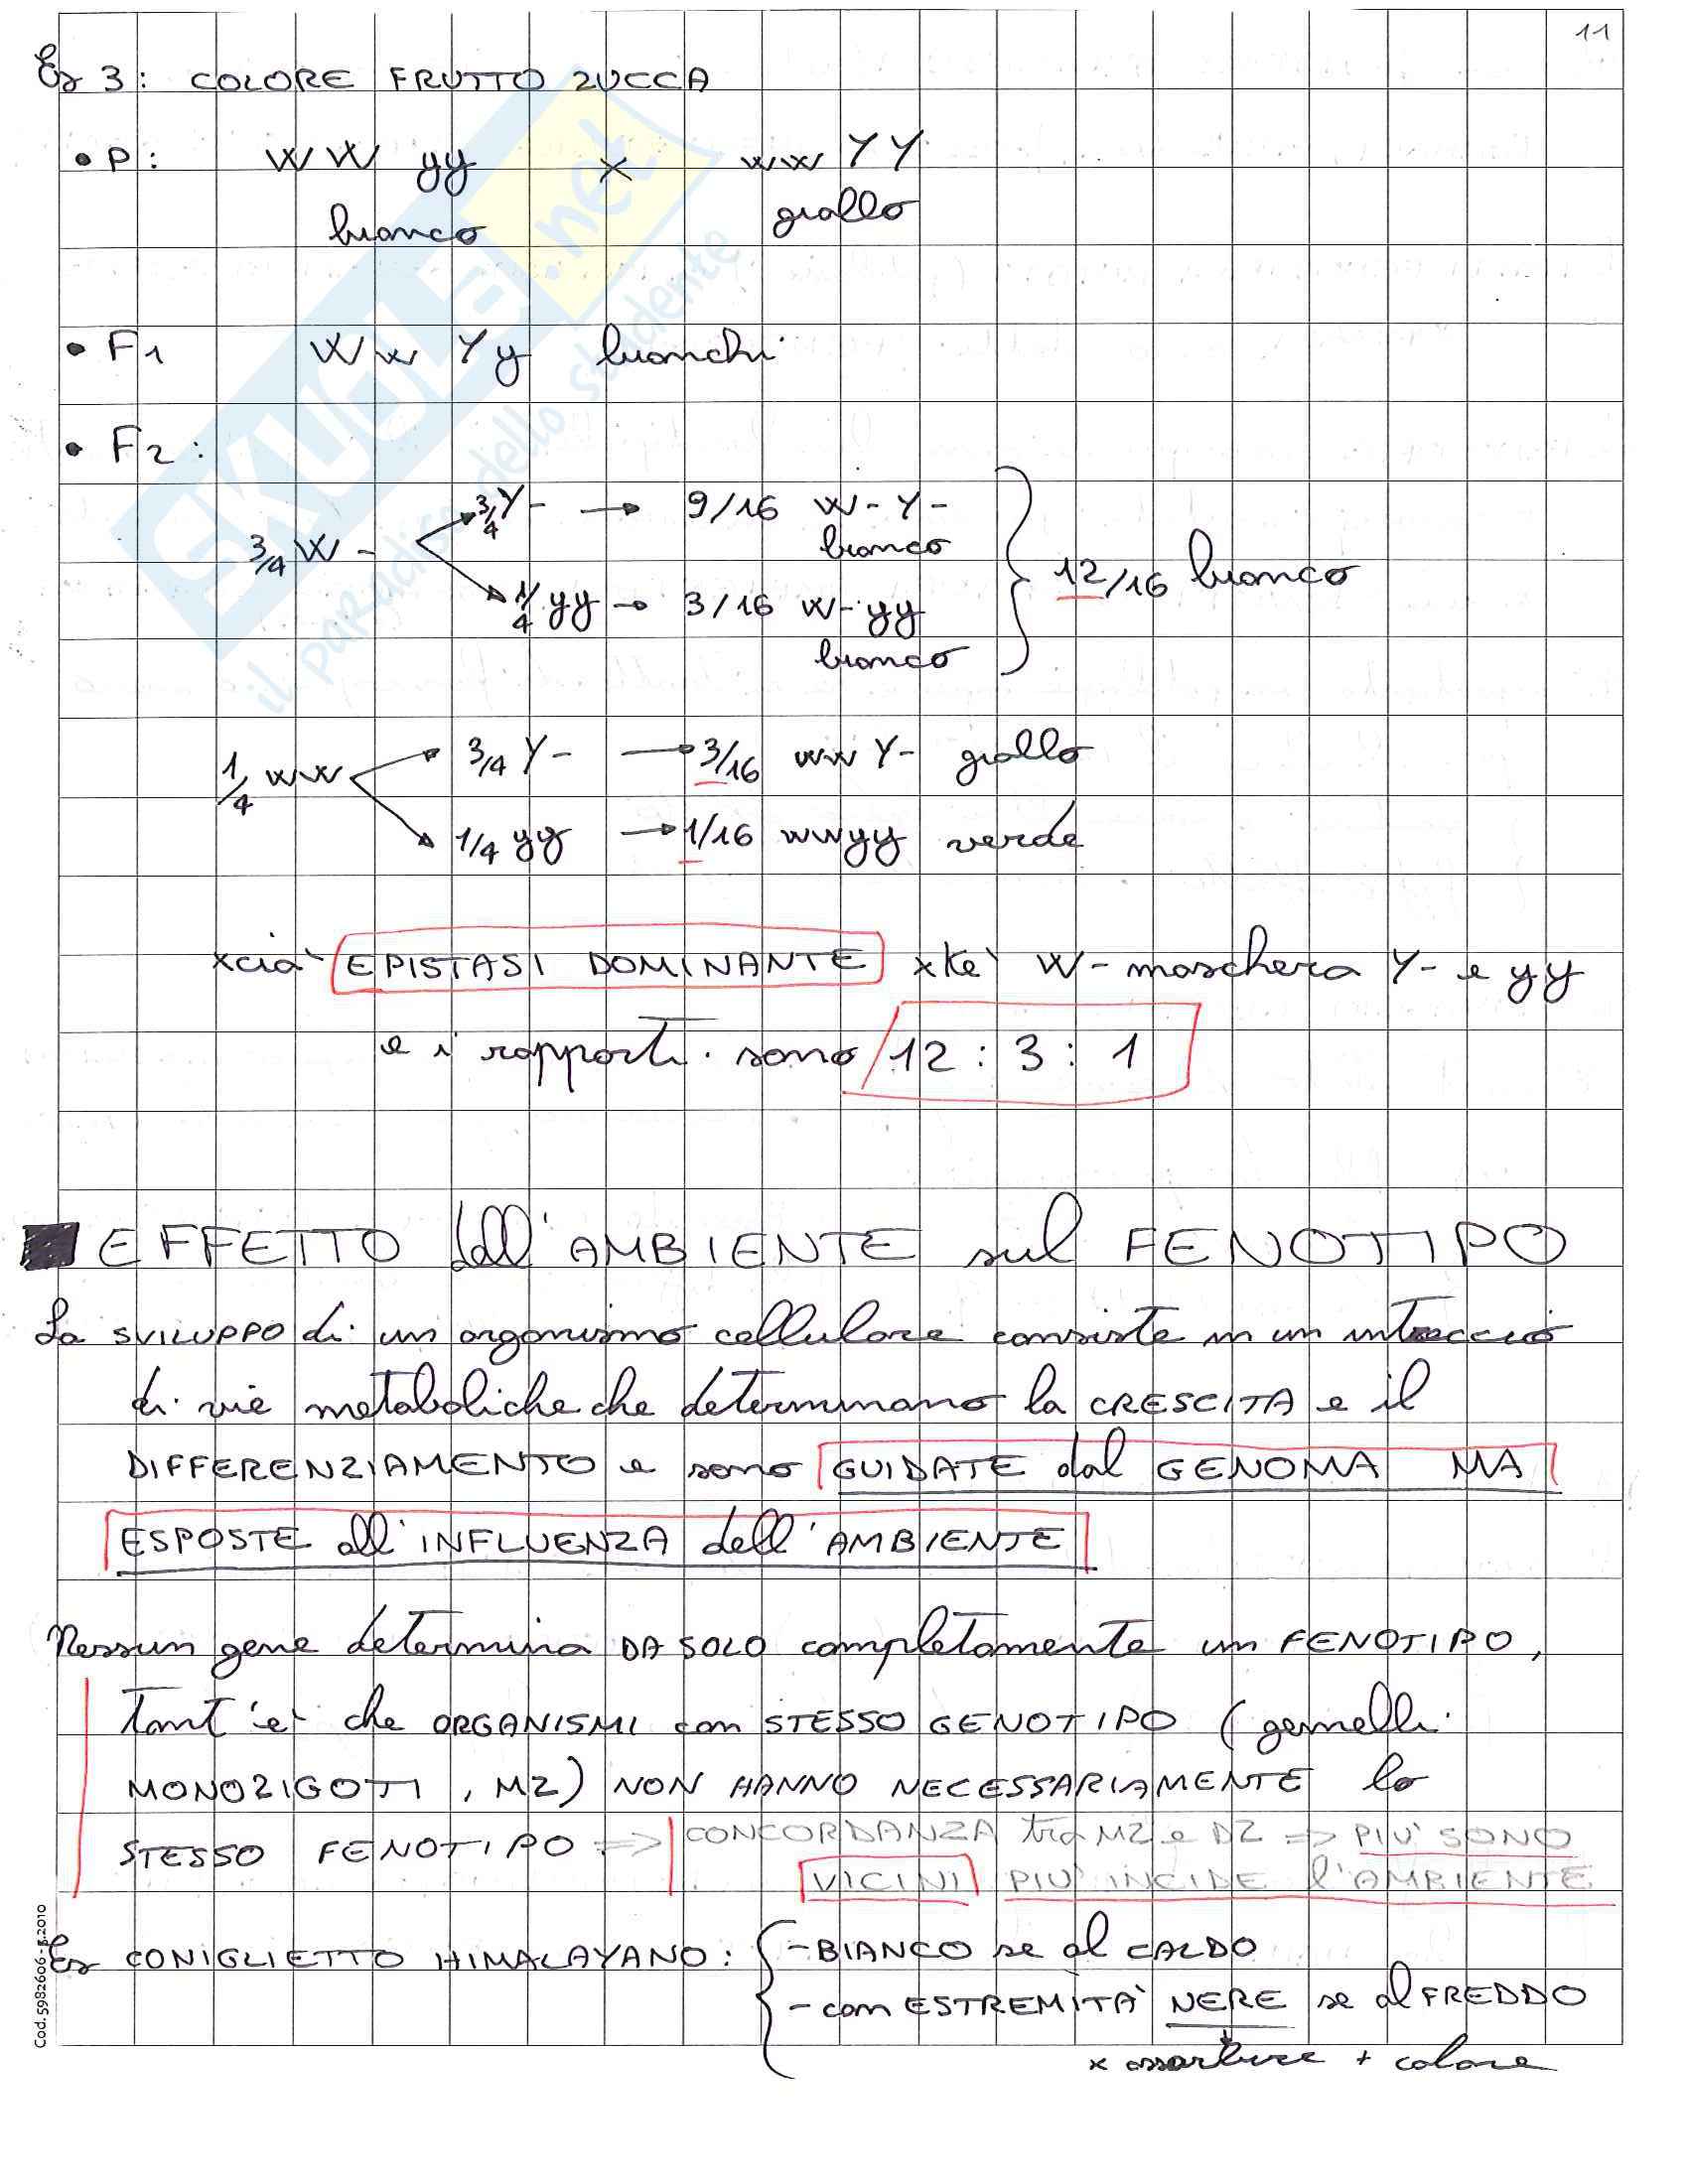 11
Es 3: COLORE FRUTTO ZUCCA
• P: WW yy x ww YY
bianco giallo
• F1 Ww Yy bianchi
• F2:
3/4 W- 3/4 Y- → 9/16 W-Y-
bianco
1/4 yy → 3/16 W-yy
bianco
12/16 bianco
1/4 ww 3/4 Y- → 3/16 ww Y- giallo
1/4 yy → 1/16 wwyy verde
xciò EPISTASI DOMINANTE xkè W- maschera Y- e yy
e i rapporti sono 12 : 3 : 1
EFFETTO dell'AMBIENTE sul FENOTIPO
Lo SVILUPPO di un organismo cellulare consiste in un intreccio
di vie metaboliche che determinano la CRESCITA e il
DIFFERENZIAMENTO e sono GUIDATE dal GENOMA MA
ESPOSTE all'INFLUENZA dell'AMBIENTE
Nessun gene determina DA SOLO completamente un FENOTIPO,
tant'è che ORGANISMI con STESSO GENOTIPO (gemelli
MONOZIGOTI, MZ) NON HANNO NECESSARIAMENTE lo
STESSO FENOTIPO => CONCORDANZA tra MZ e DZ => PIU' SONO
VICINI PIU' INCIDE l'AMBIENTE
Es CONIGLIETTO HIMALAYANO: - BIANCO se al CALDO
- con ESTREMITÀ NERE se al FREDDO
x assorbire + calore
Cod. 5982606 - 5.2010
SKUOLA.net
il paradiso dello studente